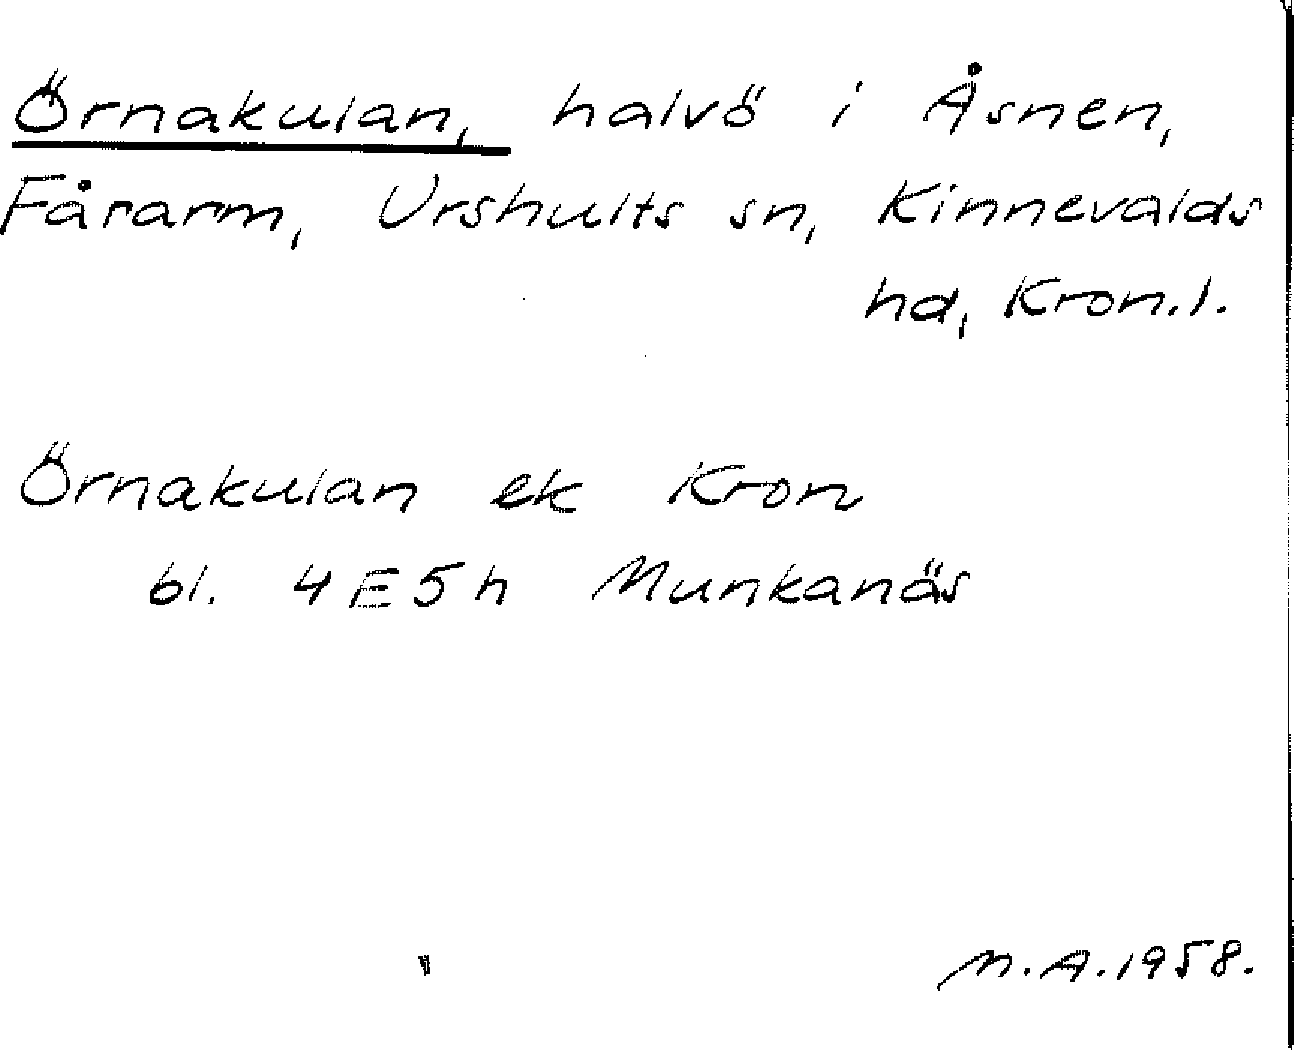 Örnakulan, halvö i Åsnen,
Fårarm, Urshults sn, Kinnevalds
hd, Kron.l.
Örnakulan ek Kron
bl. 4E5h Munkanäs
M.A.1958.